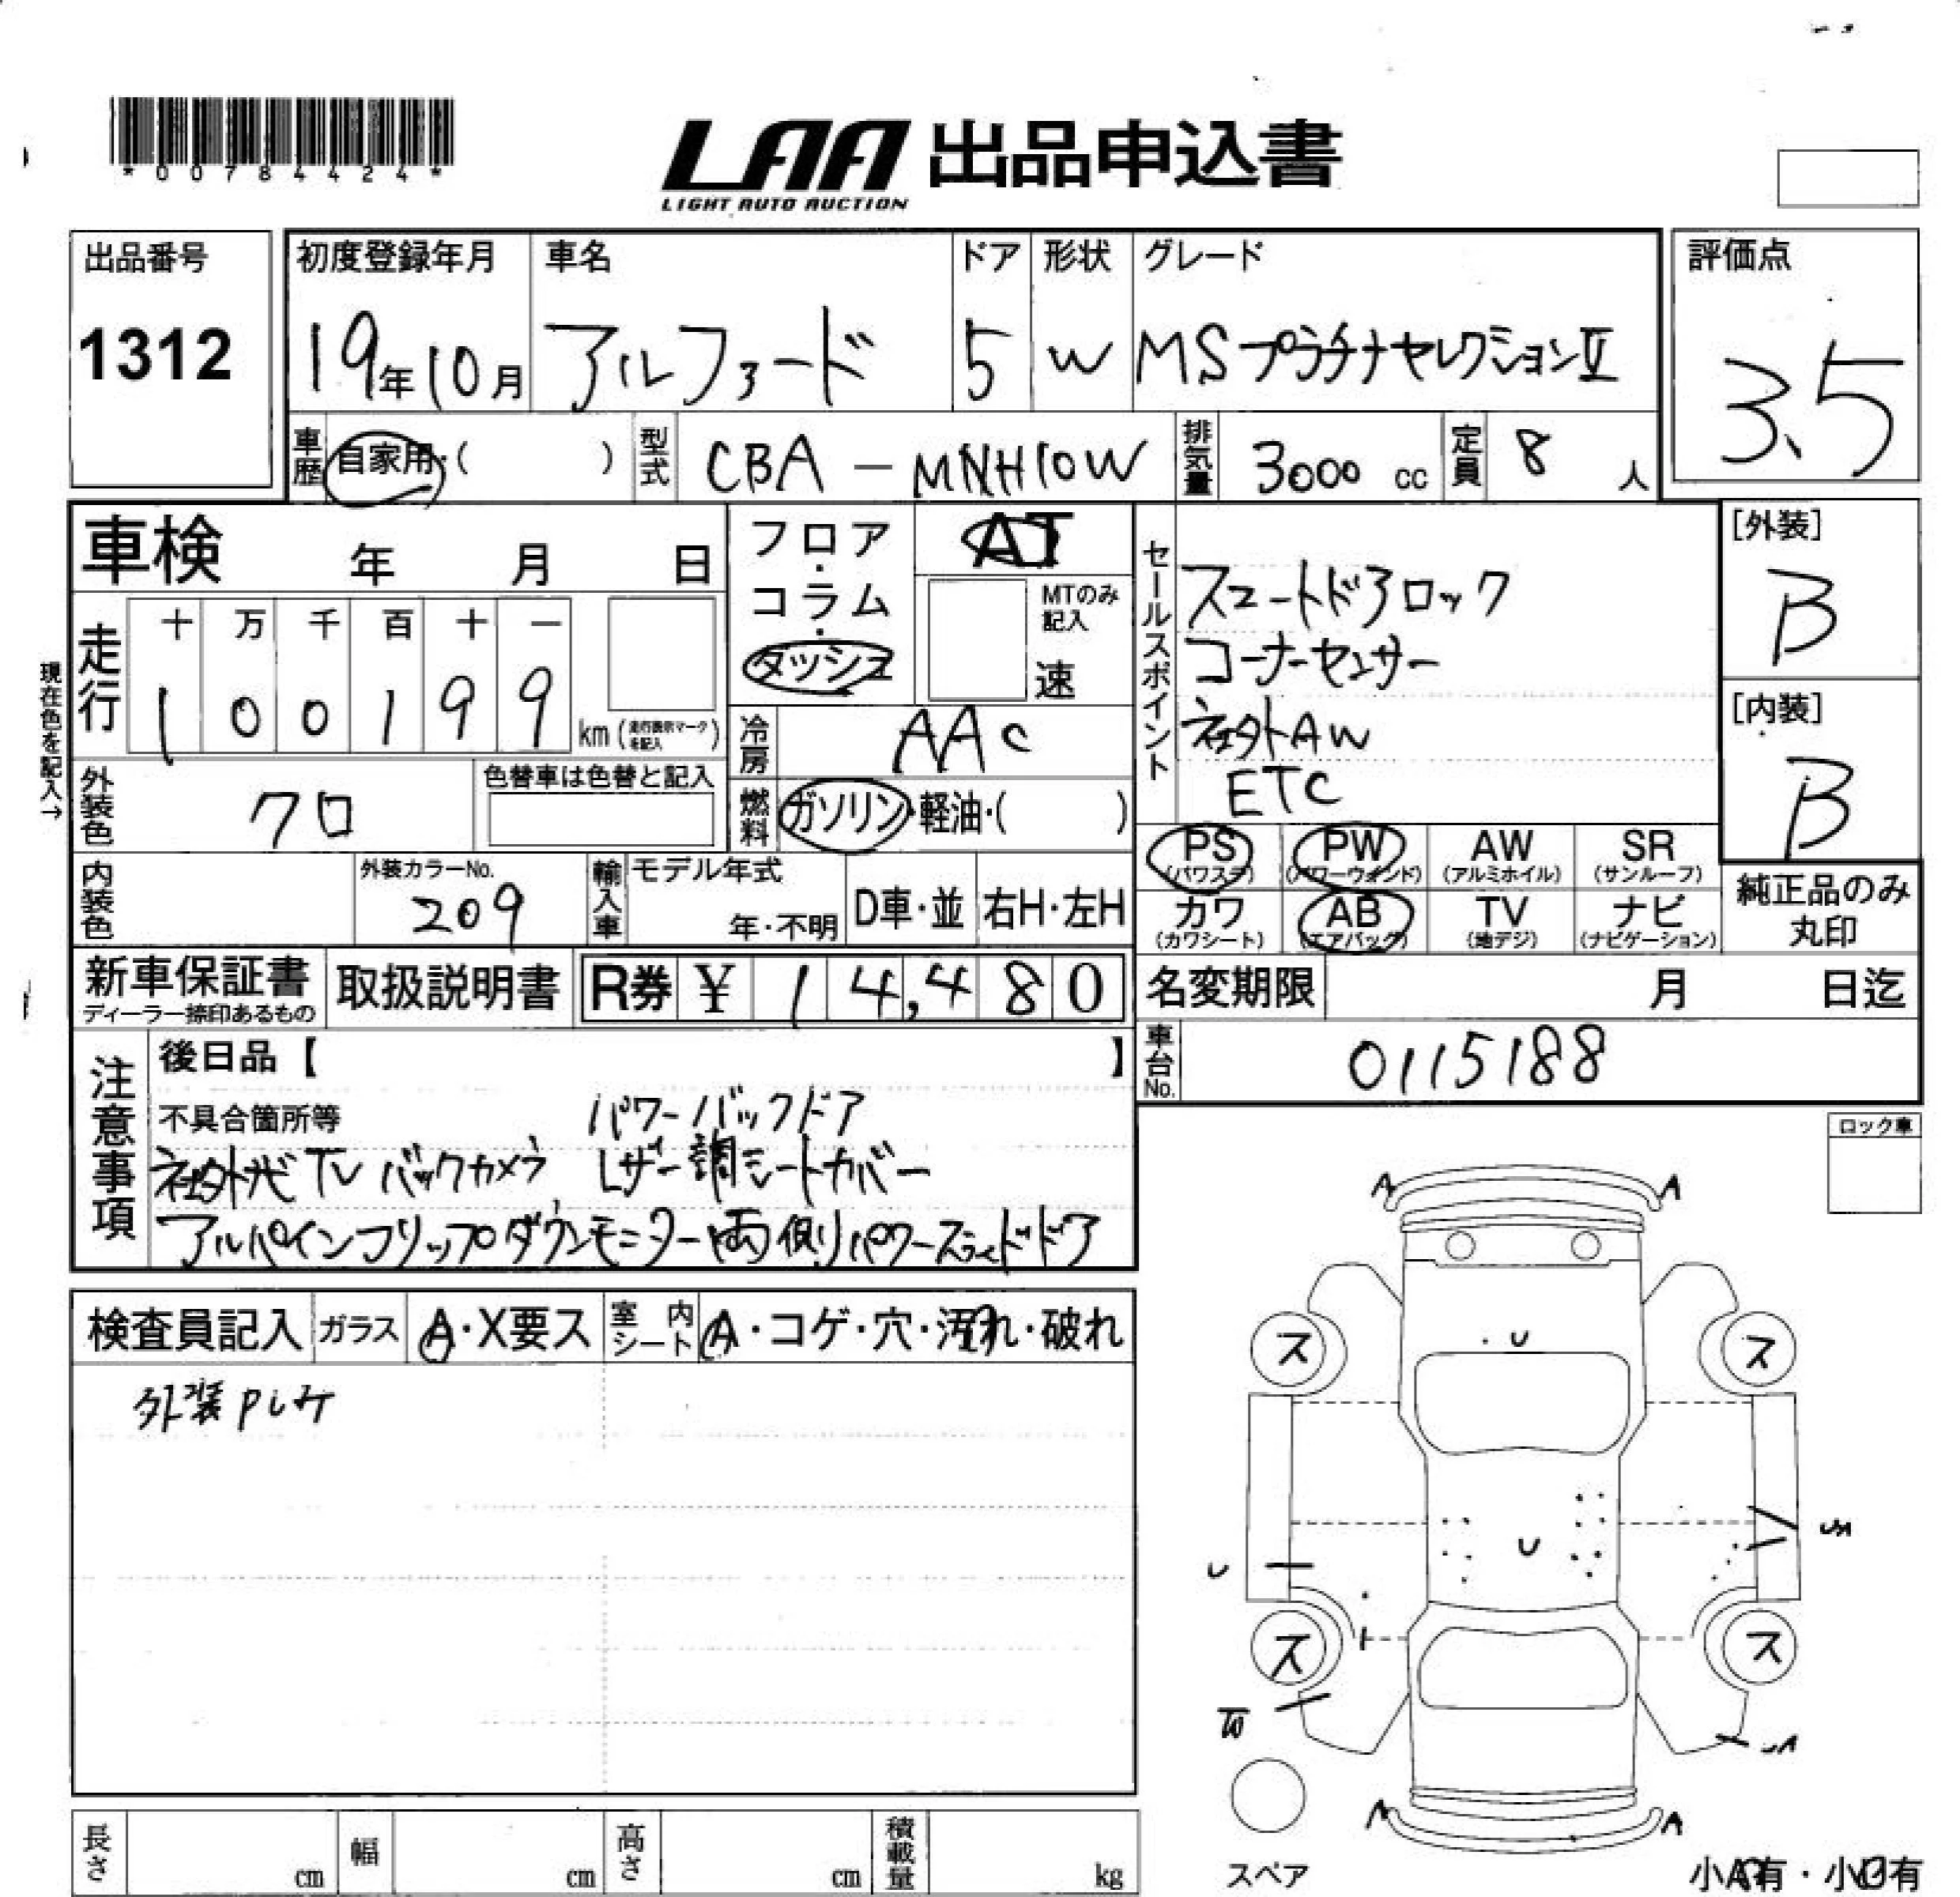 *00784424*
LAA 出品申込書
LIGHT AUTO AUCTION
出品番号
1312
初度登録年月
19年10月
車名
アルファード
ドア
5
形状
W
グレード
MSプラチナセレクションⅡ
評価点
3.5
車歴 自家用・( )
型式 CBA-MNH10W
排気量 3000 cc
定員 8 人
車検 年 月 日
現在色を記入→
走行
十 万 千 百 十 一
1 0 0 1 9 9 km (走行表示マークを記入)
フロア・コラム・ダッシュ
AT
MTのみ記入
速
冷房 AAC
燃料 ガソリン・軽油・( )
外装色 クロ
色替車は色替と記入
内装色
外装カラーNo.
209
輸入車
モデル年式
年・不明
D車・並
右H・左H
セールスポイント
スマートドアロック
コーナーセンサー
社外AW
ETC
[外装]
B
[内装]
B
PS (パワステ)
PW (パワーウィンド)
AW (アルミホイル)
SR (サンルーフ)
カワ (カワシート)
AB (エアバッグ)
TV (地デジ)
ナビ (ナビゲーション)
純正品のみ丸印
新車保証書
ディーラー捺印あるもの
取扱説明書
R券 ¥ 14,480
名変期限 月 日迄
車台No. 0115188
注意事項
後日品【 】
不具合箇所等 パワーバックドア
社外ナビ TV バックカメラ レザー調シートカバー
アルパインフリップダウンモニター両側パワースライドドア
ロック車
検査員記入
ガラス A・X要ス
室内シート A・コゲ・穴・汚れ・破れ
外装
A A
ス ス
U
U
U
ス ス
A A
スペア
小A有・小U有
長さ cm
幅 cm
高さ cm
積載量 kg